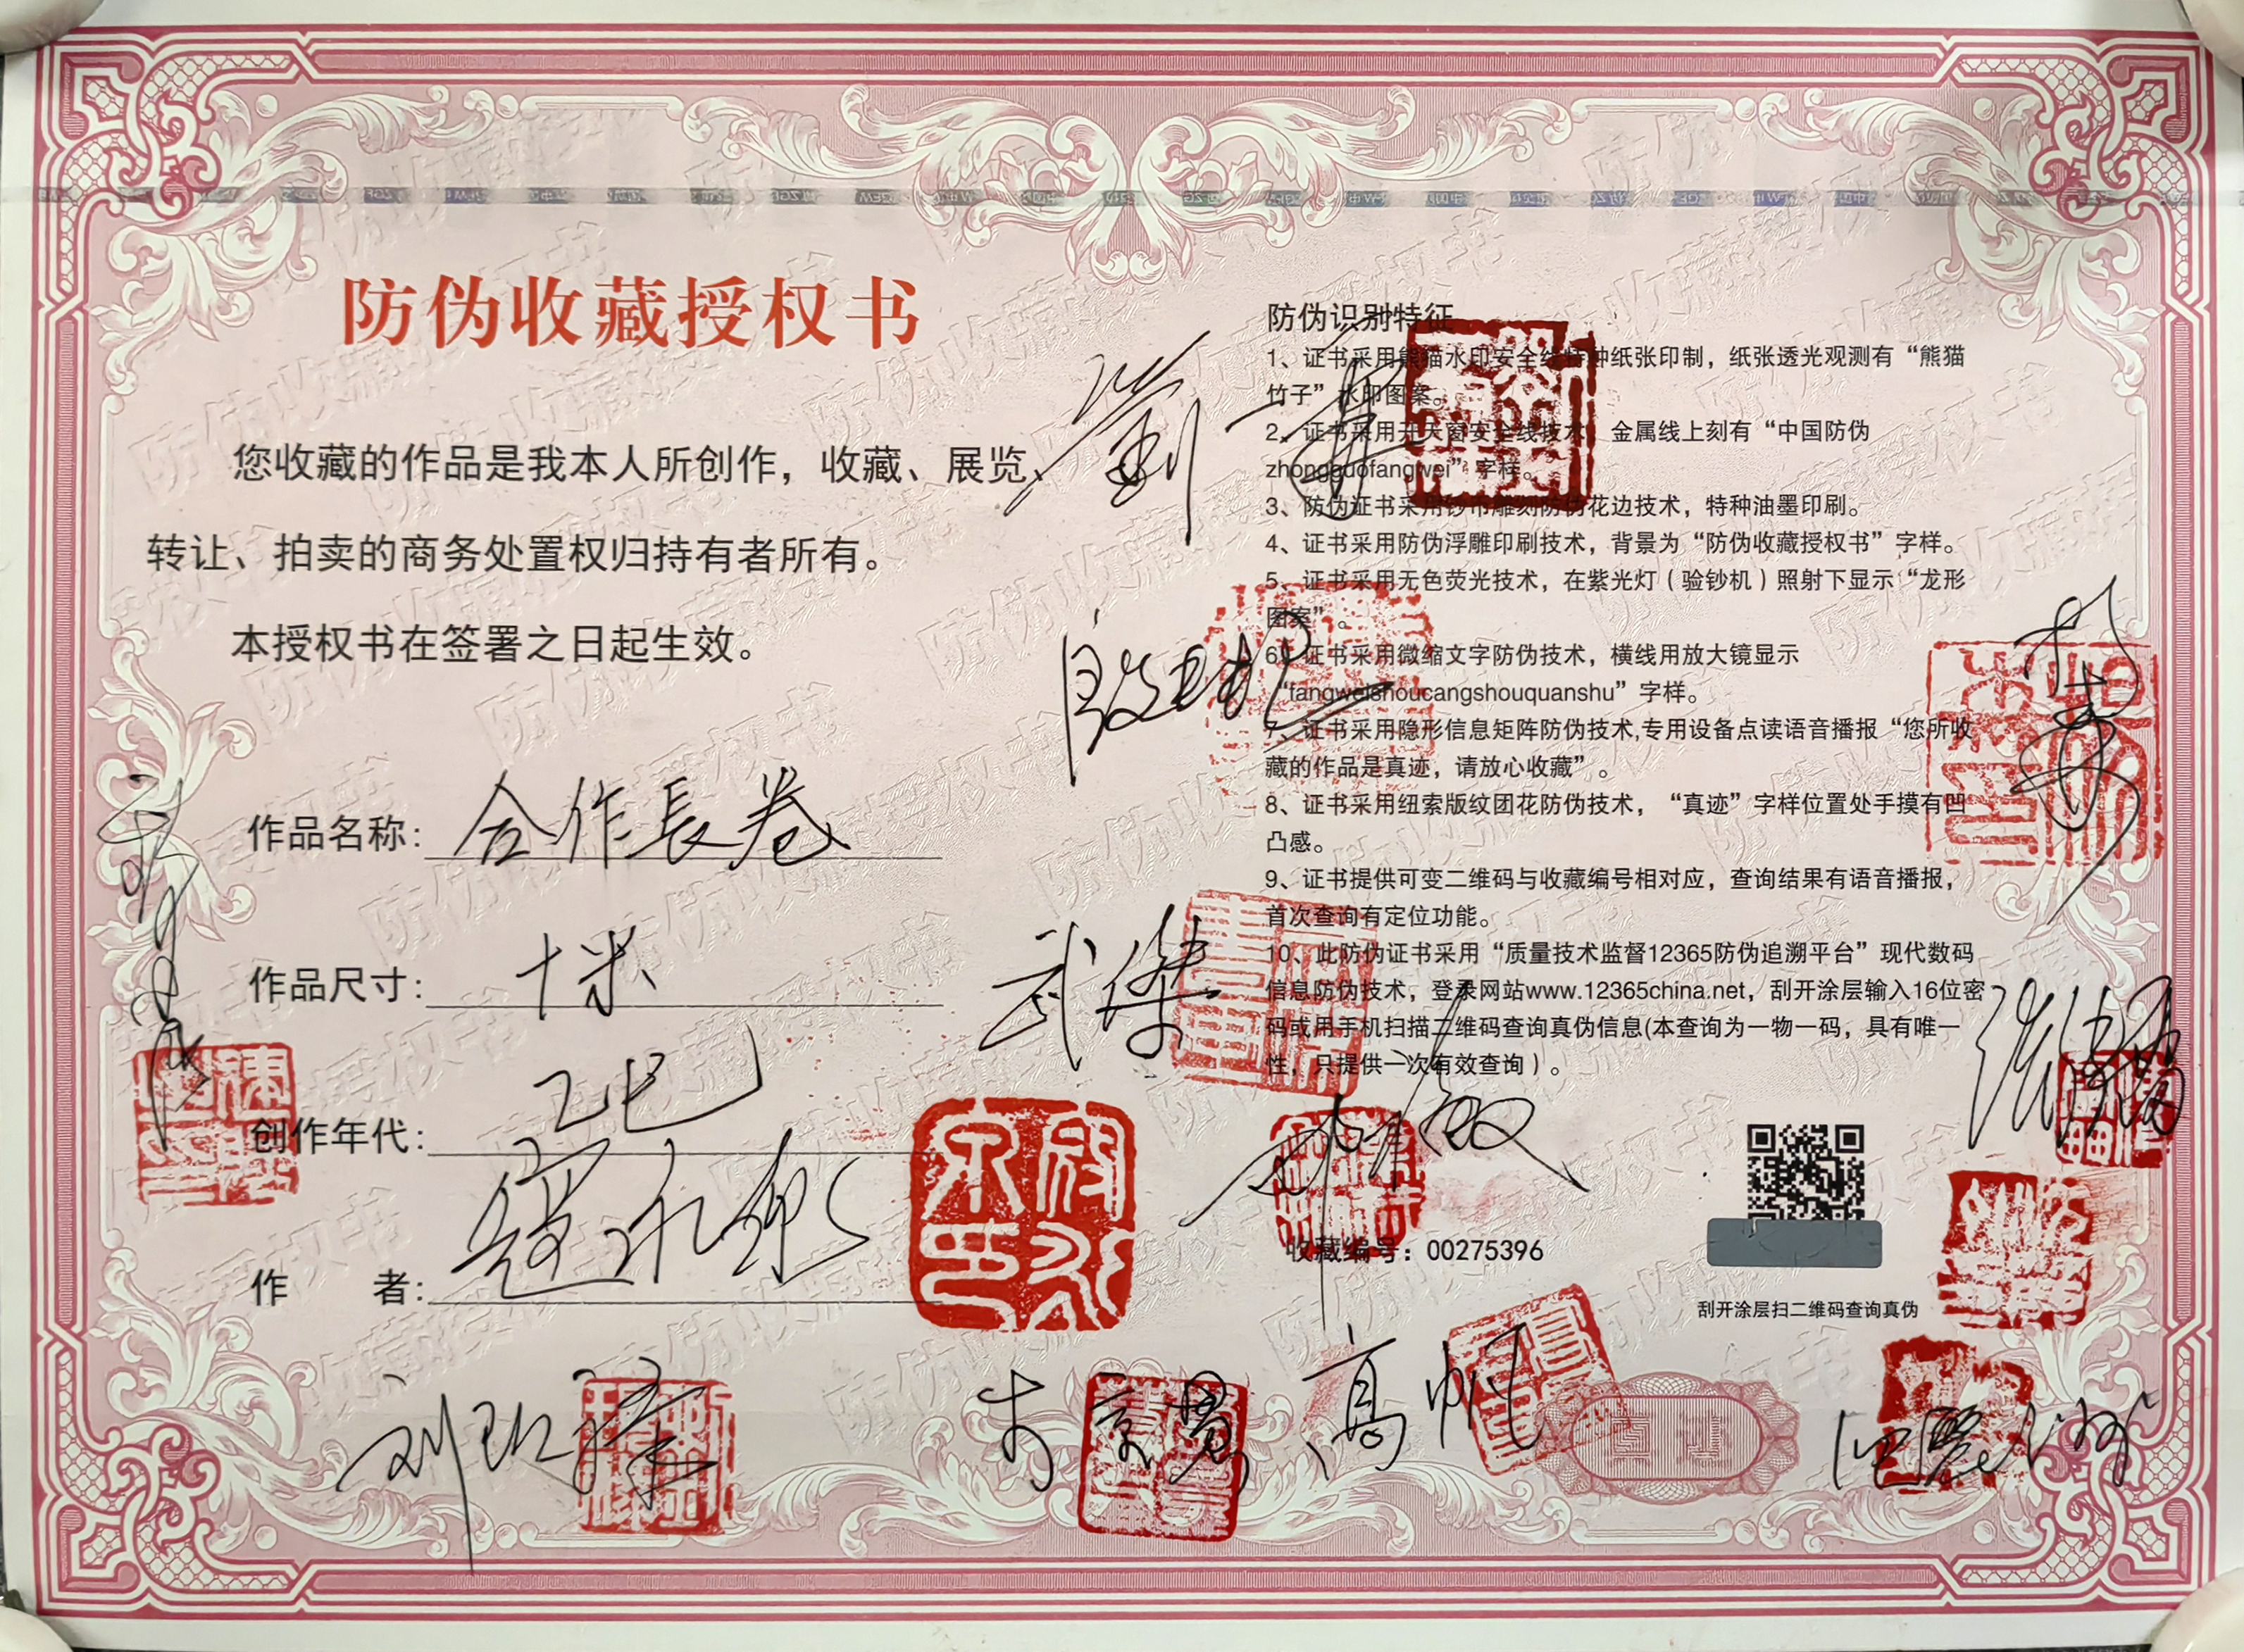 防伪收藏授权书
您收藏的作品是我本人所创作，收藏、展览、
转让、拍卖的商务处置权归持有者所有。
本授权书在签署之日起生效。
作品名称：合作長卷
作品尺寸：十米
创作年代：乙巳
作 者：
防伪识别特征
1、证书采用熊猫水印安全线特种纸张印制，纸张透光观测有“熊猫
竹子”水印图案。
2、证书采用开天窗安全线技术，金属线上刻有“中国防伪
zhongguofangwei”字样。
3、防伪证书采用钞币雕刻防伪花边技术，特种油墨印刷。
4、证书采用防伪浮雕印刷技术，背景为“防伪收藏授权书”字样。
5、证书采用无色荧光技术，在紫光灯（验钞机）照射下显示“龙形
图案”。
6、证书采用微缩文字防伪技术，横线用放大镜显示
“fangweishoucangshouquanshu”字样。
7、证书采用隐形信息矩阵防伪技术,专用设备点读语音播报“您所收
藏的作品是真迹，请放心收藏”。
8、证书采用纽索版纹团花防伪技术，“真迹”字样位置处手摸有凹
凸感。
9、证书提供可变二维码与收藏编号相对应，查询结果有语音播报，
首次查询有定位功能。
10、此防伪证书采用“质量技术监督12365防伪追溯平台”现代数码
信息防伪技术，登录网站www.12365china.net，刮开涂层输入16位密
码或用手机扫描二维码查询真伪信息(本查询为一物一码，具有唯一
性，只提供一次有效查询）。
收藏编号：00275396
刮开涂层扫二维码查询真伪
武傑
高帆
真迹